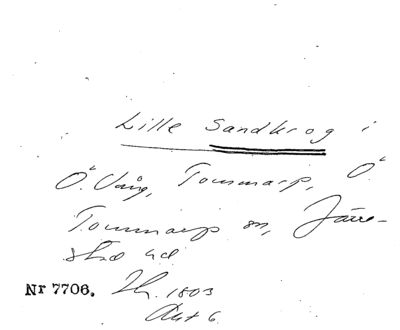 Lille Sandkrog i
Ö. Vång, Tommarp, Ö.
Tommarp sn, Järre-
stad hd
Nr 7706. Lh. 1803
Akt 6